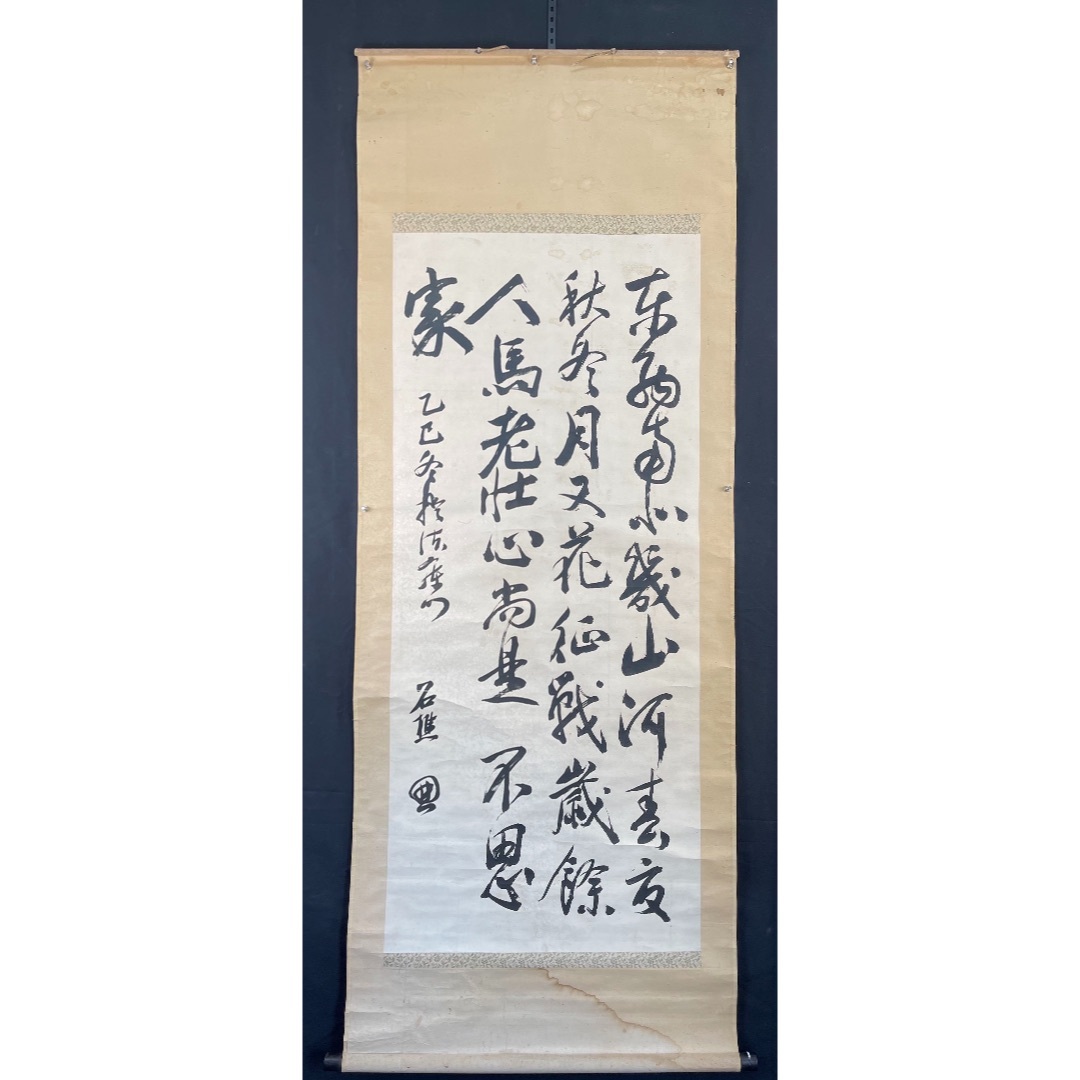 東西南北幾山河春夏
秋冬月又花征戰歳餘
人馬老壮心尚是不思
家
乙巳冬於法庫門
石樵